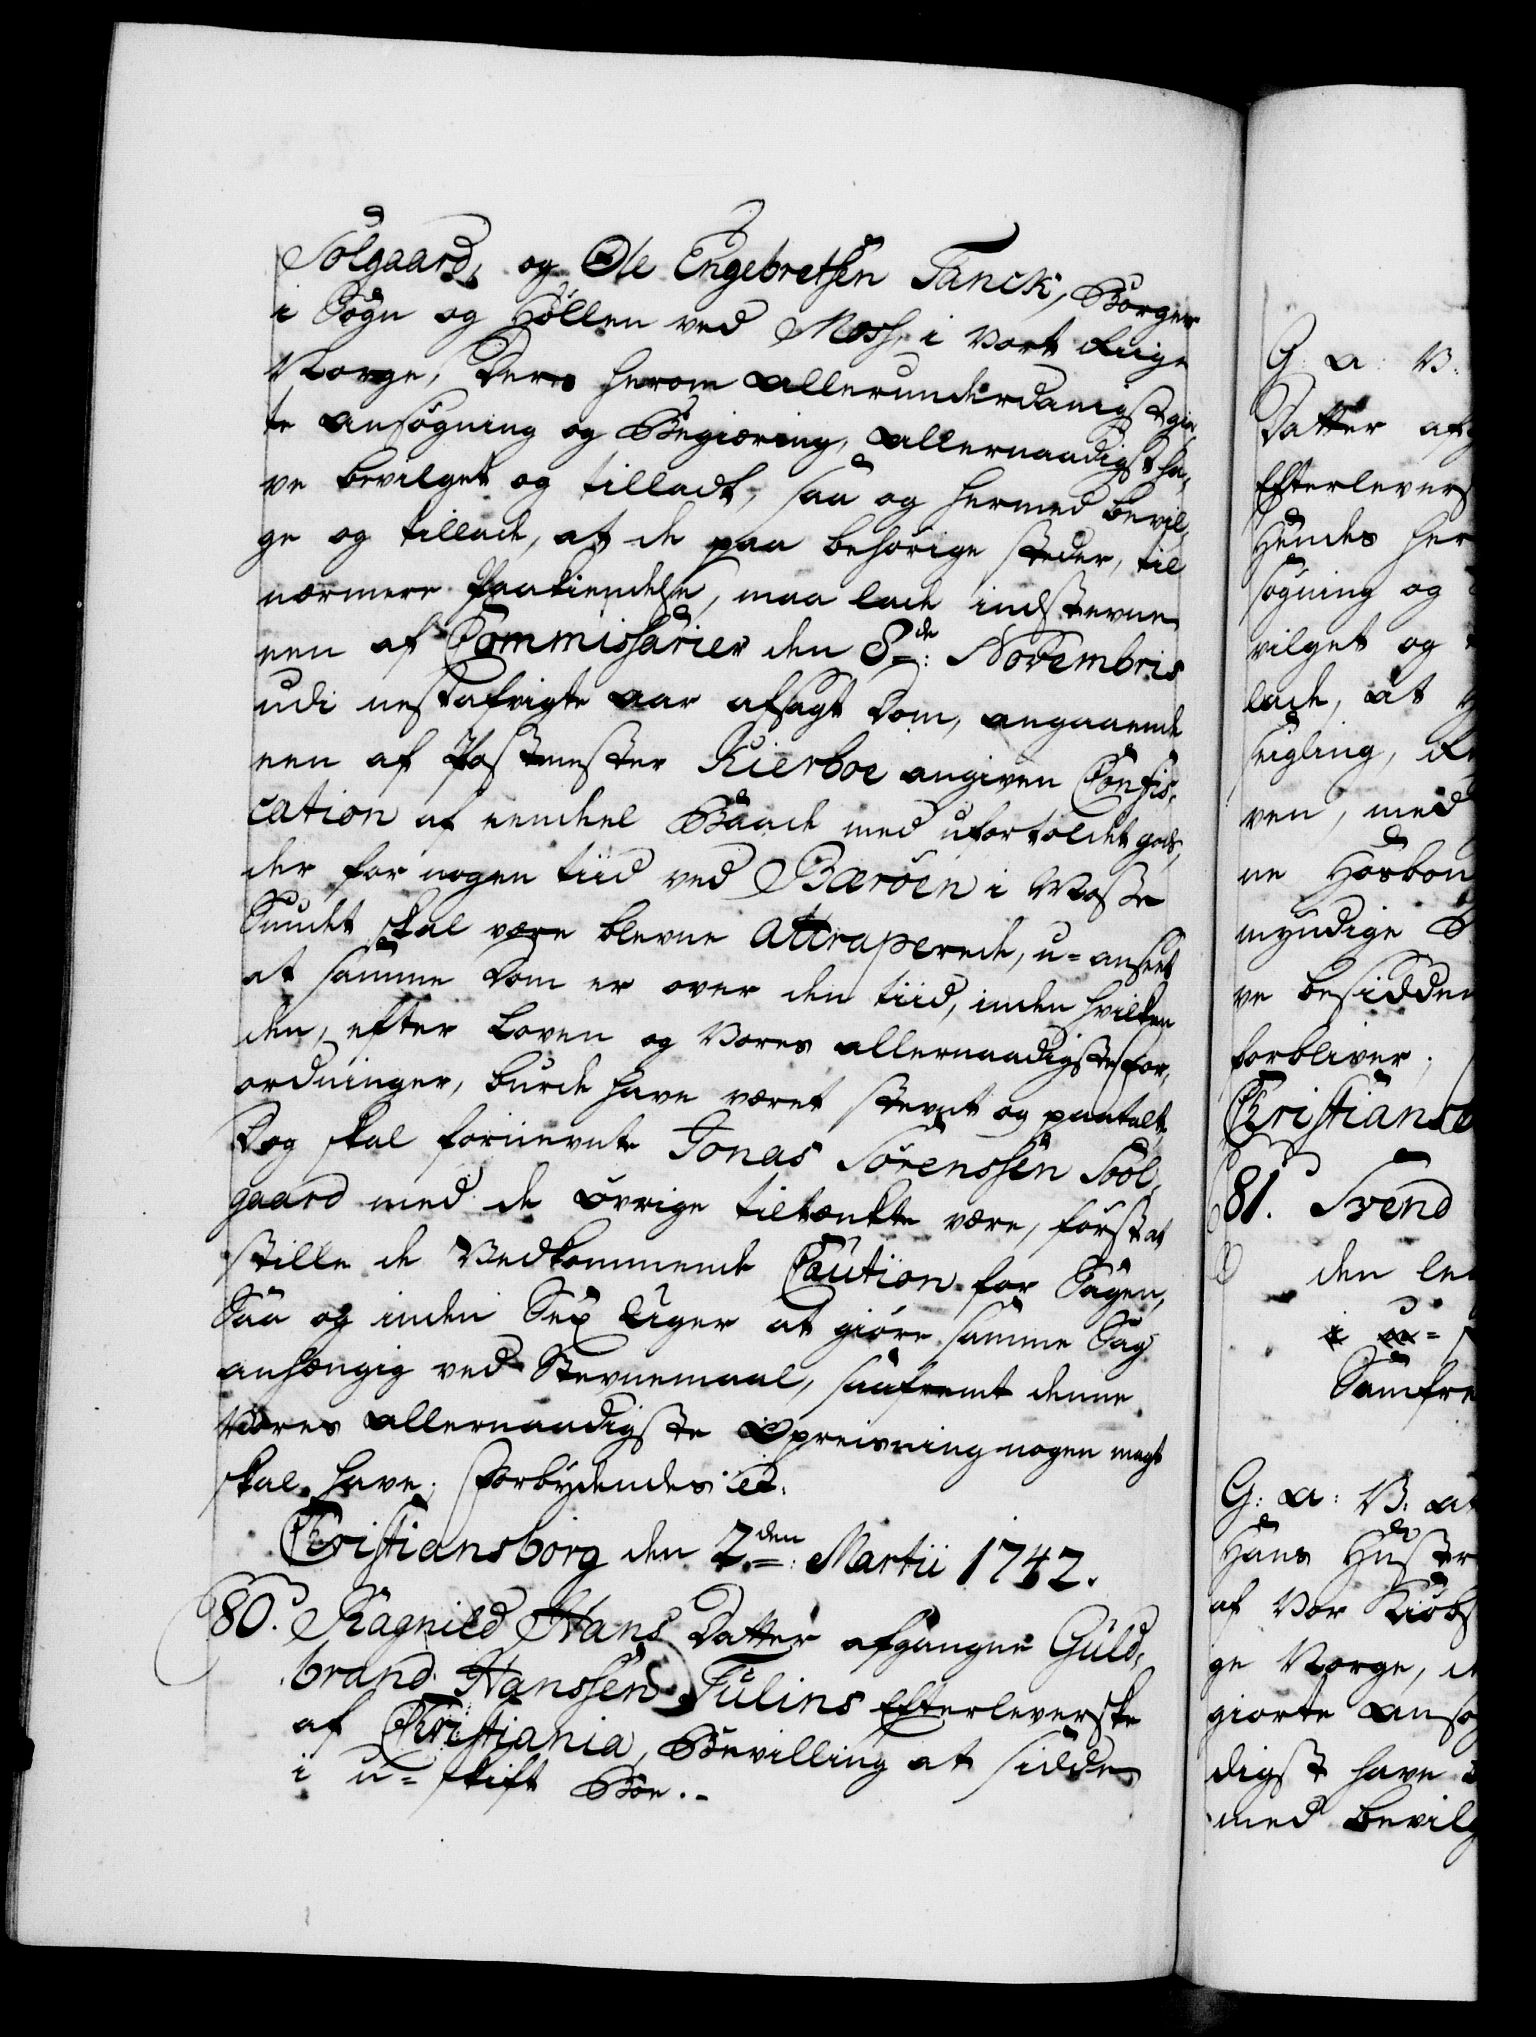 Solgaard, og Ole Engebretsen Tanck, Borger
i Sogn og Hollen ved Moss, i Vort Riige
Norge, deres herom allerunderdanigst gior¬
te ansøgning og Begiæring, allernaadigst ha¬
ve bevilget og tilladt, saa og hermed bevil¬
ge og tillade, at de paa behørige steder, til
nærmere Paakiendelse, maa lade indstevne
een af Commissarier den 8de: Novembris
udi nestafvigte aar afsagt Dom, angaaende
een af Postmester Kierboe angiven Confis¬
cation af eendeel Baade med ufortoldet gods,
der for nogen tiid ved Bærøen i Mosse
Sundet skal være blevne attraperede, u-anseet
at samme Dom er over den tiid, inden hvilken
den, efter Loven og Vores allernaadigste for¬
ordninger, burde have været stevnt og paatalt,
Dog skal fornevnte Jonas Sørenssen Sool¬
gaard med de øvrige tiltænkte være, først at
stille de Vedkommende Caution for Sagen,
Saa og inden Sex Uger at giøre samme Sag
anhængig ved Stevnemaal, saafremt denne
Vores allernaadigste Opreisning nogen magt
skal have; forbydendes etc.
Christiansborg den 2den: Martii 1742.
80. Ragnild Hans Datter afgangne Guld¬
brand Hanssen Tulins Efterleverske
af Christiania, Bevilling at sidde
i u-skift Boe.
G: a: V:
Datter afg
Efterlevers
Hendes her
søgning og
vilget og
lade, at
seigling,
ven, med
ne Hosbon
myndige
ve besidden
forbliver;
Christiansb
81. Svend
den le
i u=
Samfre
G: a: V: at
Hans Hustr
af Vor Kiøbs
ge Norge,
giorte Ansø
digst have
med bevilg